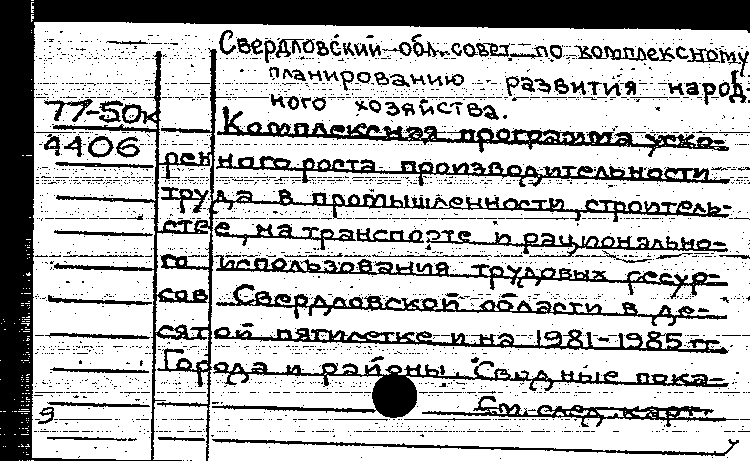 Свердловский обл. совет по комплексному
планированию развития народ-
ного хозяйства.
77-50к
4406
Комплексная программа уско-
ренного роста производительности
труда в промышленности, строитель-
стве, на транспорте и рационально-
го использования трудовых ресур-
сов Свердловской области в де-
сятой пятилетке и на 1981-1985 гг.
Города и районы. Сводные пока-
См. след. карт.
9